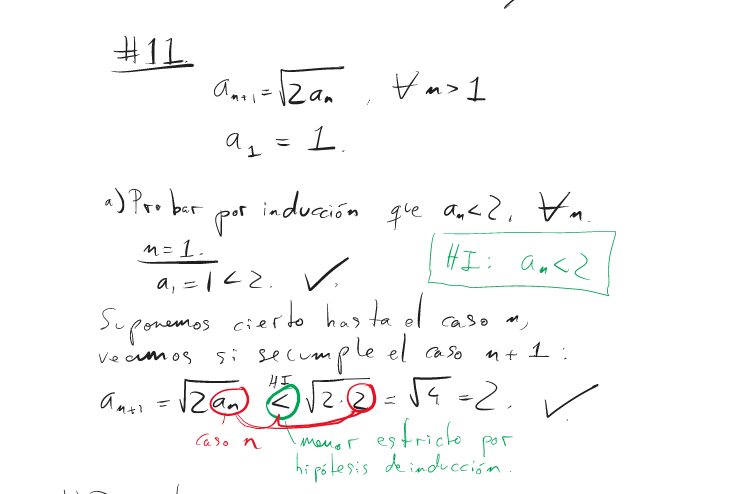 #11.
aₙ₊₁ = √(2aₙ) , ∀ n > 1
a₁ = 1.
a) Probar por inducción que aₙ < 2, ∀ n.
n = 1.
a₁ = 1 < 2. ✓.
HI: aₙ < 2
Suponemos cierto hasta el caso n,
veamos si se cumple el caso n + 1 :
HI
aₙ₊₁ = √(2aₙ) < √(2·2) = √4 = 2. ✓
caso n
menor estricto por
hipótesis de inducción.